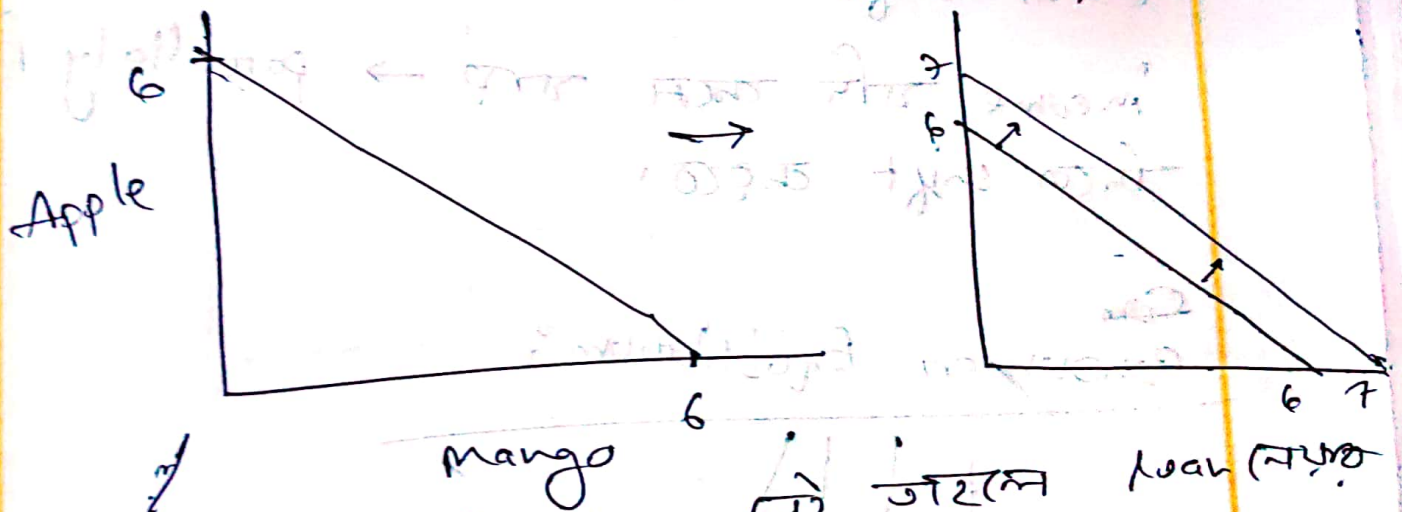 6
Apple
6
Mango
→
7
6
6 7
তাহলে loan নেয়ার